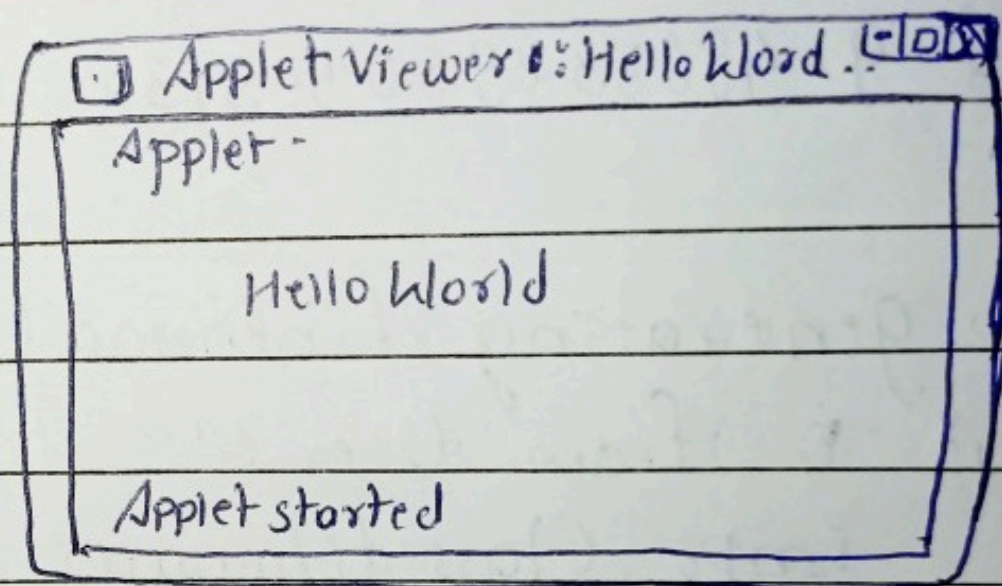 Applet Viewer : Hello Word ..
Applet -
Hello World
Applet started